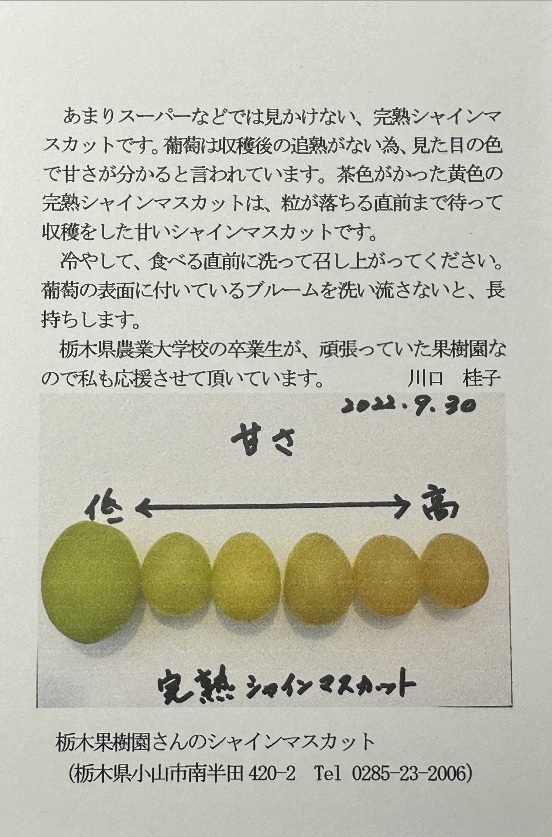 あまりスーパーなどでは見かけない、完熟シャインマ
スカットです。葡萄は収穫後の追熟がない為、見た目の色
で甘さが分かると言われています。茶色がかった黄色の
完熟シャインマスカットは、粒が落ちる直前まで待って
収穫をした甘いシャインマスカットです。
冷やして、食べる直前に洗って召し上がってください。
葡萄の表面に付いているブルームを洗い流さないと、長
持ちします。
栃木県農業大学校の卒業生が、頑張っていた果樹園な
ので私も応援させて頂いています。 川口 桂子
2022.9.30
甘さ
低 ↔ 高
完熟シャインマスカット
栃木果樹園さんのシャインマスカット
(栃木県小山市南半田 420-2 Tel 0285-23-2006)